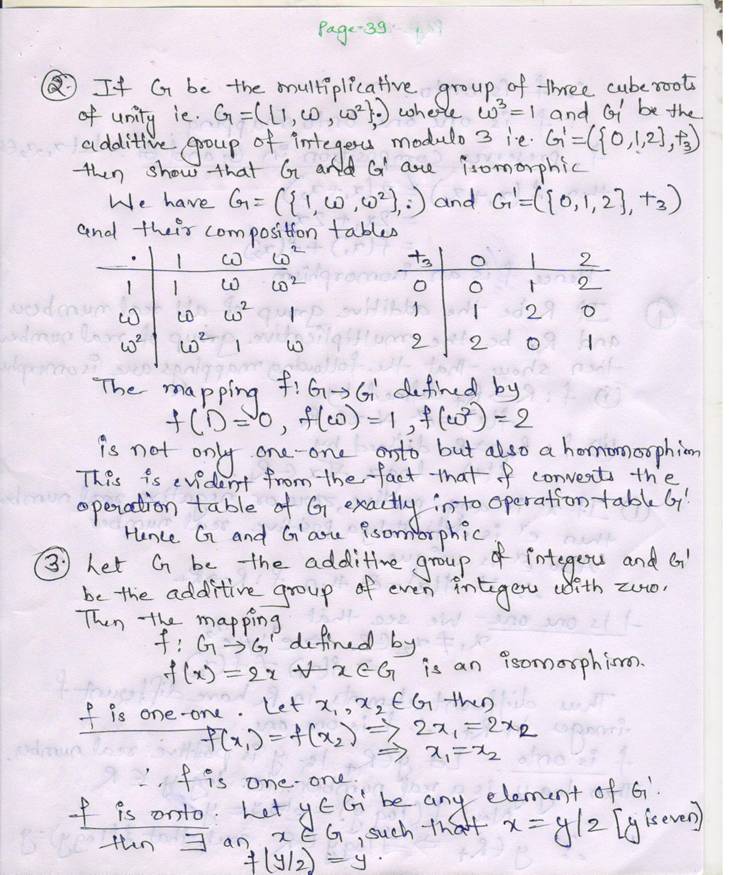 Page-39
② If G be the multiplicative group of three cube roots
of unity ie. G=({1, ω, ω²},·) where ω³=1 and G' be the
additive group of integers modulo 3 i.e. G'=({0,1,2},+₃)
then show that G and G' are isomorphic
We have G= ({1 ω, ω²}, ·) and G'=({0,1,2}, +₃)
and their composition tables
· | 1 ω ω² +₃ | 0 1 2
1 | 1 ω ω² 0 | 0 1 2
ω | ω ω² 1 1 | 1 2 0
ω² | ω² 1 ω 2 | 2 0 1
The mapping f: G→G' defined by
f(1)=0, f(ω)=1, f(ω²)=2
is not only one-one onto but also a homomorphism
This is evident from the fact that f converts the
operation table of G exactly into operation table G'.
Hence G and G' are isomorphic
③ Let G be the additive group of integers and G'
be the additive group of even integers with zero.
Then the mapping
f: G→G' defined by
f(x)=2x ∀ x∈G is an isomorphism.
f is one-one. Let x₁, x₂ ∈ G then
f(x₁)=f(x₂) => 2x₁=2x₂
=> x₁=x₂
∴ f is one-one.
f is onto. Let y∈G' be any element of G'.
then ∃ an x∈G such that x=y/2 [y is even)
f(y/2)=y.